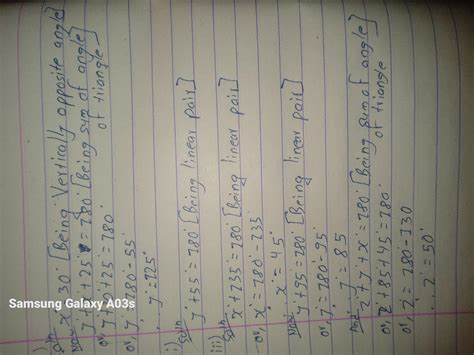 i) Soln
x = 30° [Being Vertically opposite angle]
Now,
y + x + 25° = 180° [Being sum of angle of triangle]
or, y + 30 + 25 = 180°
or, y = 180° - 55°
∴ y = 125°
ii) Soln
y + 55 = 180° [Being linear pair]
iii) Soln
x + 135 = 180 [Being linear pair]
or, x = 180° - 135
x = 45°
Now,
y + 95 = 180° [Being linear pair]
or, y = 180 - 95
y = 85
And
z + y + x = 180° [Being sum of angle of triangle]
or, z + 85 + 45 = 180°
or, z = 180 - 130
∴ z = 50°
Samsung Galaxy A03s